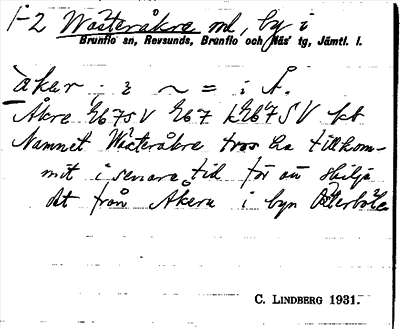 1-2 Wästeråkre ml, by i
Brunflo sn, Revsunds, Brunflo och Näs' tg, Jämtl. l.
åker, i ~ = i Å.
Åkre 2b7SV 2b7 kt
Namnet Wästeråkre tros ha tillkom-
mit i senare tid för att skilja
det från Åkern i byn Österböle
C. LINDBERG 1931.